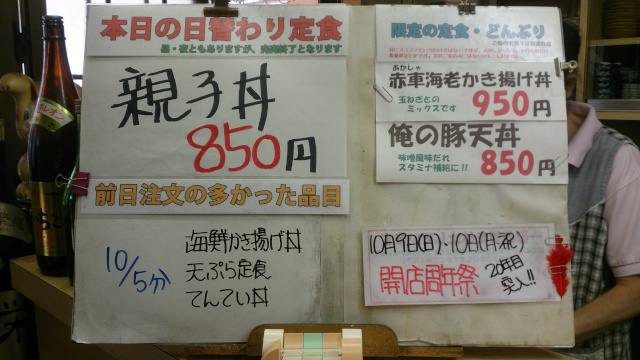 本日の日替わり定食
昼・夜ともありますが、完売終了となります
親子丼
850円
前日注文の多かった品目
10/5分
海鮮かき揚げ丼
天ぷら定食
てんてい丼
限定の定食・どんぶり
あかしゃ
赤車海老かき揚げ丼
玉ねぎとの
ミックスです
950円
俺の豚天丼
味噌風味だれ
スタミナ補給に!!
850円
10月9日(日)・10日(月・祝)
開店周年祭
20年目
突入!!